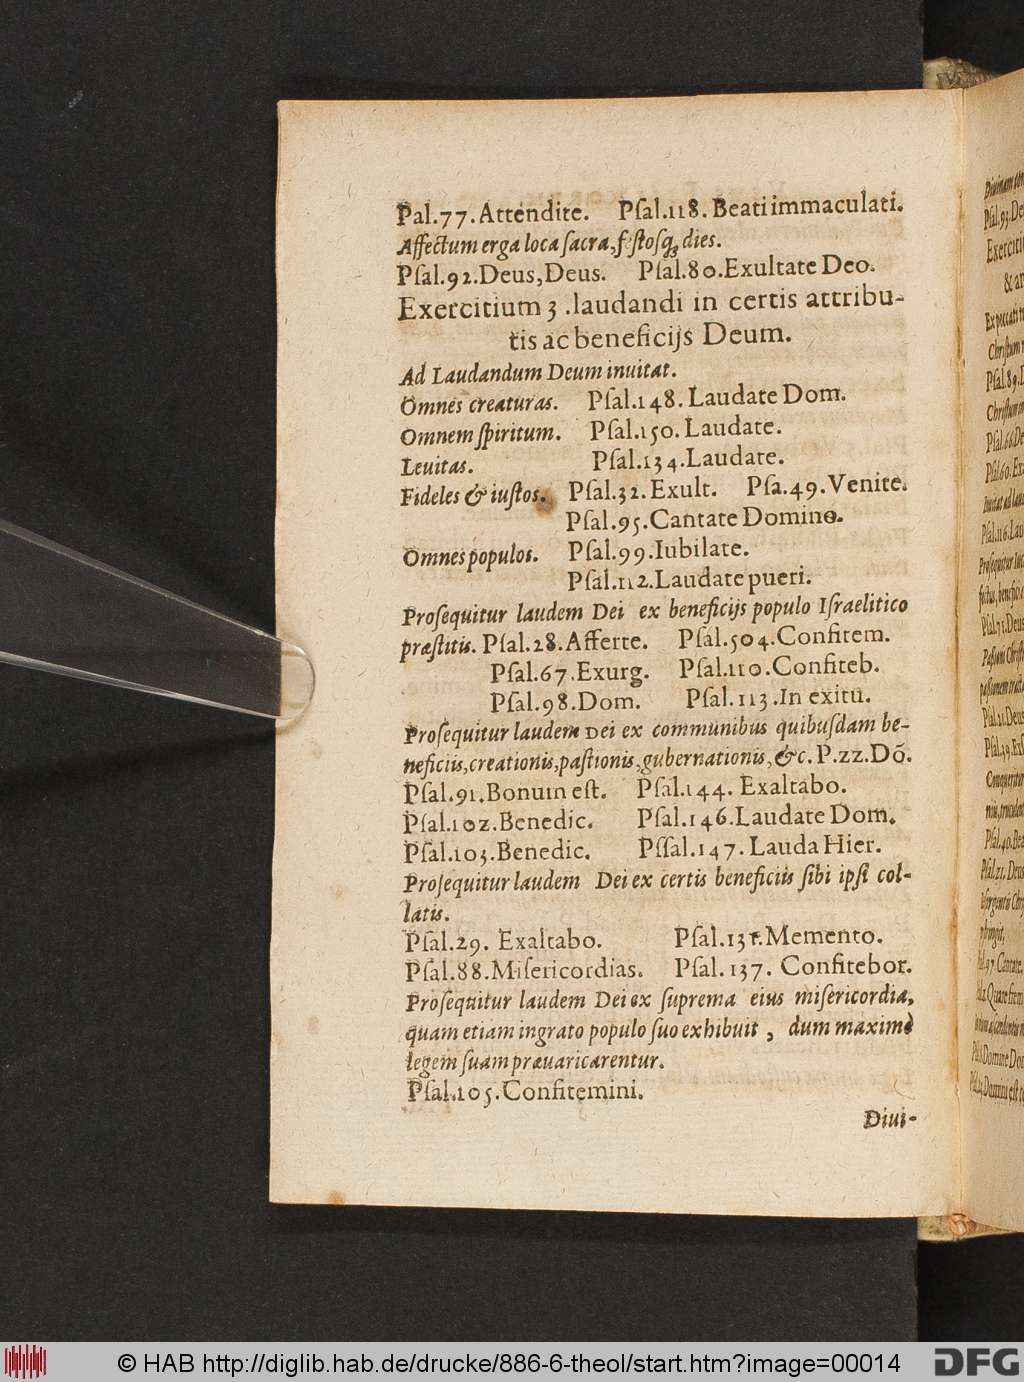 Pal.77.Attendite. Pſal.118.Beati immaculati.
Affectum erga loca ſacra, f ſtoſq́; dies.
Pſal.92.Deus, Deus. Pſal.80.Exultate Deo.
Exercitium 3 .laudandi in certis attribu-
tis ac beneficijs Deum.
Ad Laudandum Deum inuitat.
Omnes creaturas. Pſal.148. Laudate Dom.
Omnem ſpiritum. Pſal.150. Laudate.
Leuitas. Pſal.134.Laudate.
Fideles & iuſtos. Pſal.32.Exult. Pſa.49.Venite.
Pſal.95.Cantate Domino.
Omnes populos. Pſal.99.Iubilate.
Pſal.112.Laudate pueri.
Proſequitur laudem Dei ex beneficijs populo Iſraelitico
præſtitis. Pſal.28.Afferte. Pſal.504.Confitem.
Pſal.67.Exurg. Pſal.110.Confiteb.
Pſal.98.Dom. Pſal.113.In exitu.
Proſequitur laudem Dei ex communibus quibuſdam be-
neficiis, creationis, paſtionis, gubernationis, &c. P.22.Dõ.
Pſal.91.Bonum eſt. Pſal.144. Exaltabo.
Pſal.102.Benedic. Pſal.146.Laudate Dom.
Pſal.103.Benedic. Pſſal.147.Lauda Hier.
Proſequitur laudem Dei ex certis beneficiis ſibi ipſi col-
latis.
Pſal.29. Exaltabo. Pſal.131.Memento.
Pſal.88.Miſericordias. Pſal.137. Confitebor.
Proſequitur laudem Dei ex ſuprema eius miſericordia,
quam etiam ingrato populo ſuo exhibuit, dum maximè
legem ſuam præuaricarentur.
Pſal.105.Confitemini.
Diui-
© HAB http://diglib.hab.de/drucke/886-6-theol/start.htm?image=00014
DFG